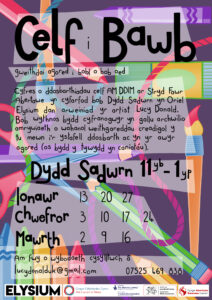 Celf i Bawb
gweithdai agored i bobl o bob oed
Cyfres o ddosbarthiadau celf AM DDIM ar Stryd Fawr
Abertawe yn cyfarfod bob Dydd Sadwrn yn Oriel
Elysium dan arweiniad yr artist Lucy Donald.
Bob wythnos bydd cyfranogwyr yn gallu archwilio
amrywiaeth o wahanol weithgareddau creadigol y
tu mewn i'r ystafell ddosbarth ac yn yr awyr
agored (os bydd y tywydd yn caniatáu).
Dydd Sadwrn 11yb-1yp
Ionawr 13 20 27
Chwefror 3 10 17 24
Mawrth 2 9 16
Am fwy o wybodaeth cysylltwch â
lucydonalduk@gmail.com 07525 469 838
ELYSIUM